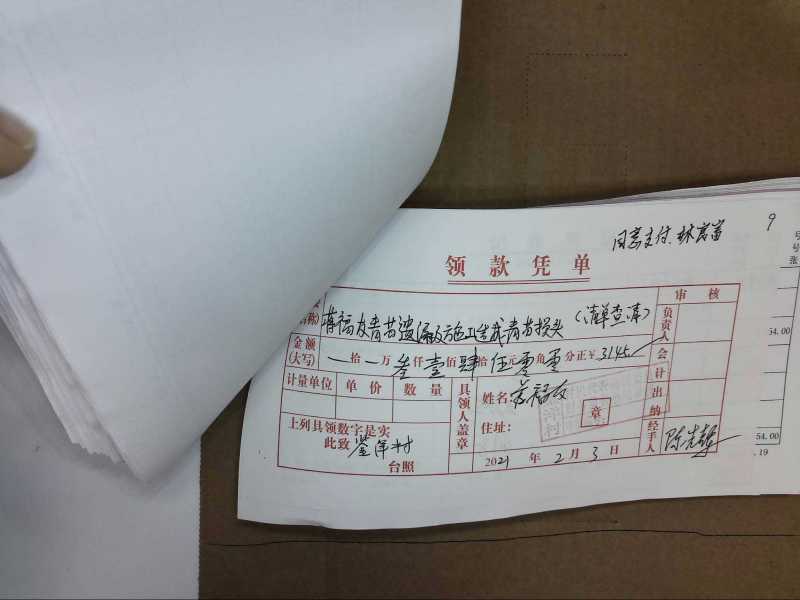 同意支付.林
9
领款凭单
号
号
张
名称)
蒋福友青苗遗漏及施工造成青苗损失(清单查清)
审核
负责人
54.00
金额(大写)
一拾一万叁仟壹佰肆拾伍元零角零分正¥3145
会计
计量单位 单价 数量
具领人盖章
姓名:蒋福友
出纳
住址:
章
上列具领数字是实
此致
台照
2021年2月3日
经手人
54.00
.19